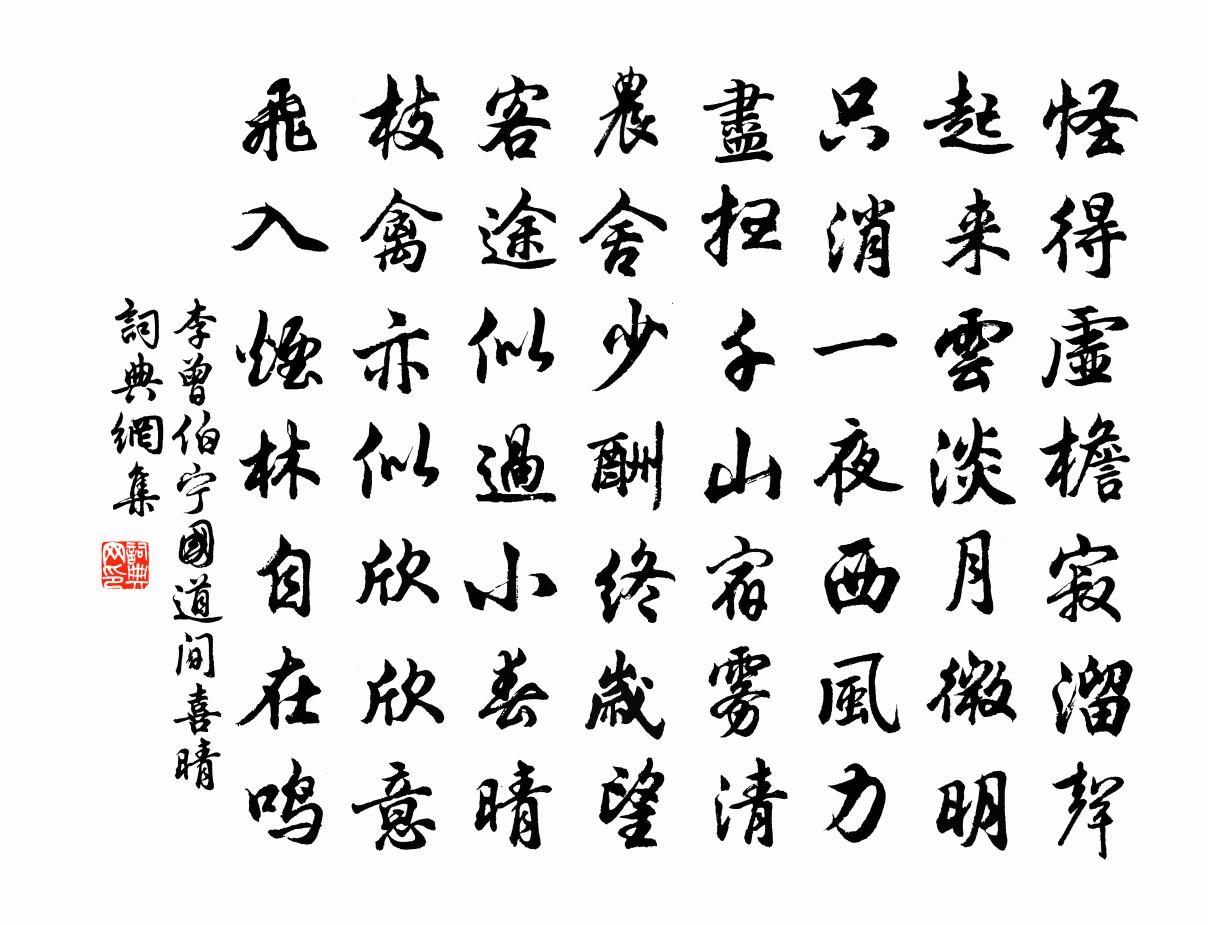 怪得虛檐寂溜聲
起来雲淡月微明
只消一夜西風力
盡扫千山宿雾清
農舍少酬終歲望
客途似過小春晴
枝禽亦似欣欣意
飛入煙林自在鸣
李曾伯宁國道间喜晴
詞典網集
詞典网印